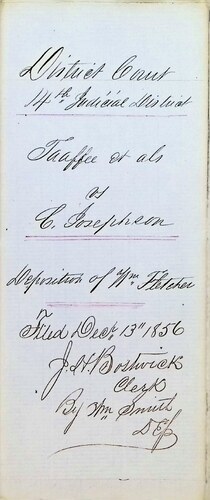 District Court
14th Judicial District
Taaffee et als
vs
C. Josephson
Deposition of Wm Fletcher
Filed Decr 13" 1856
J. H. Bostwick
Clerk
By Wm Smith
Dep